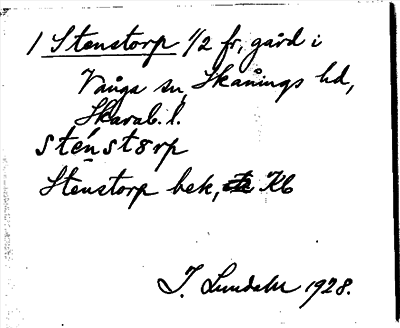 1 Stenstorp 1/2 fr, gård i
Vångs sn, Skånings hd,
Skarab. l.
sténstorp
Stenstorp bek, Kb
J. Lundahl 1928.